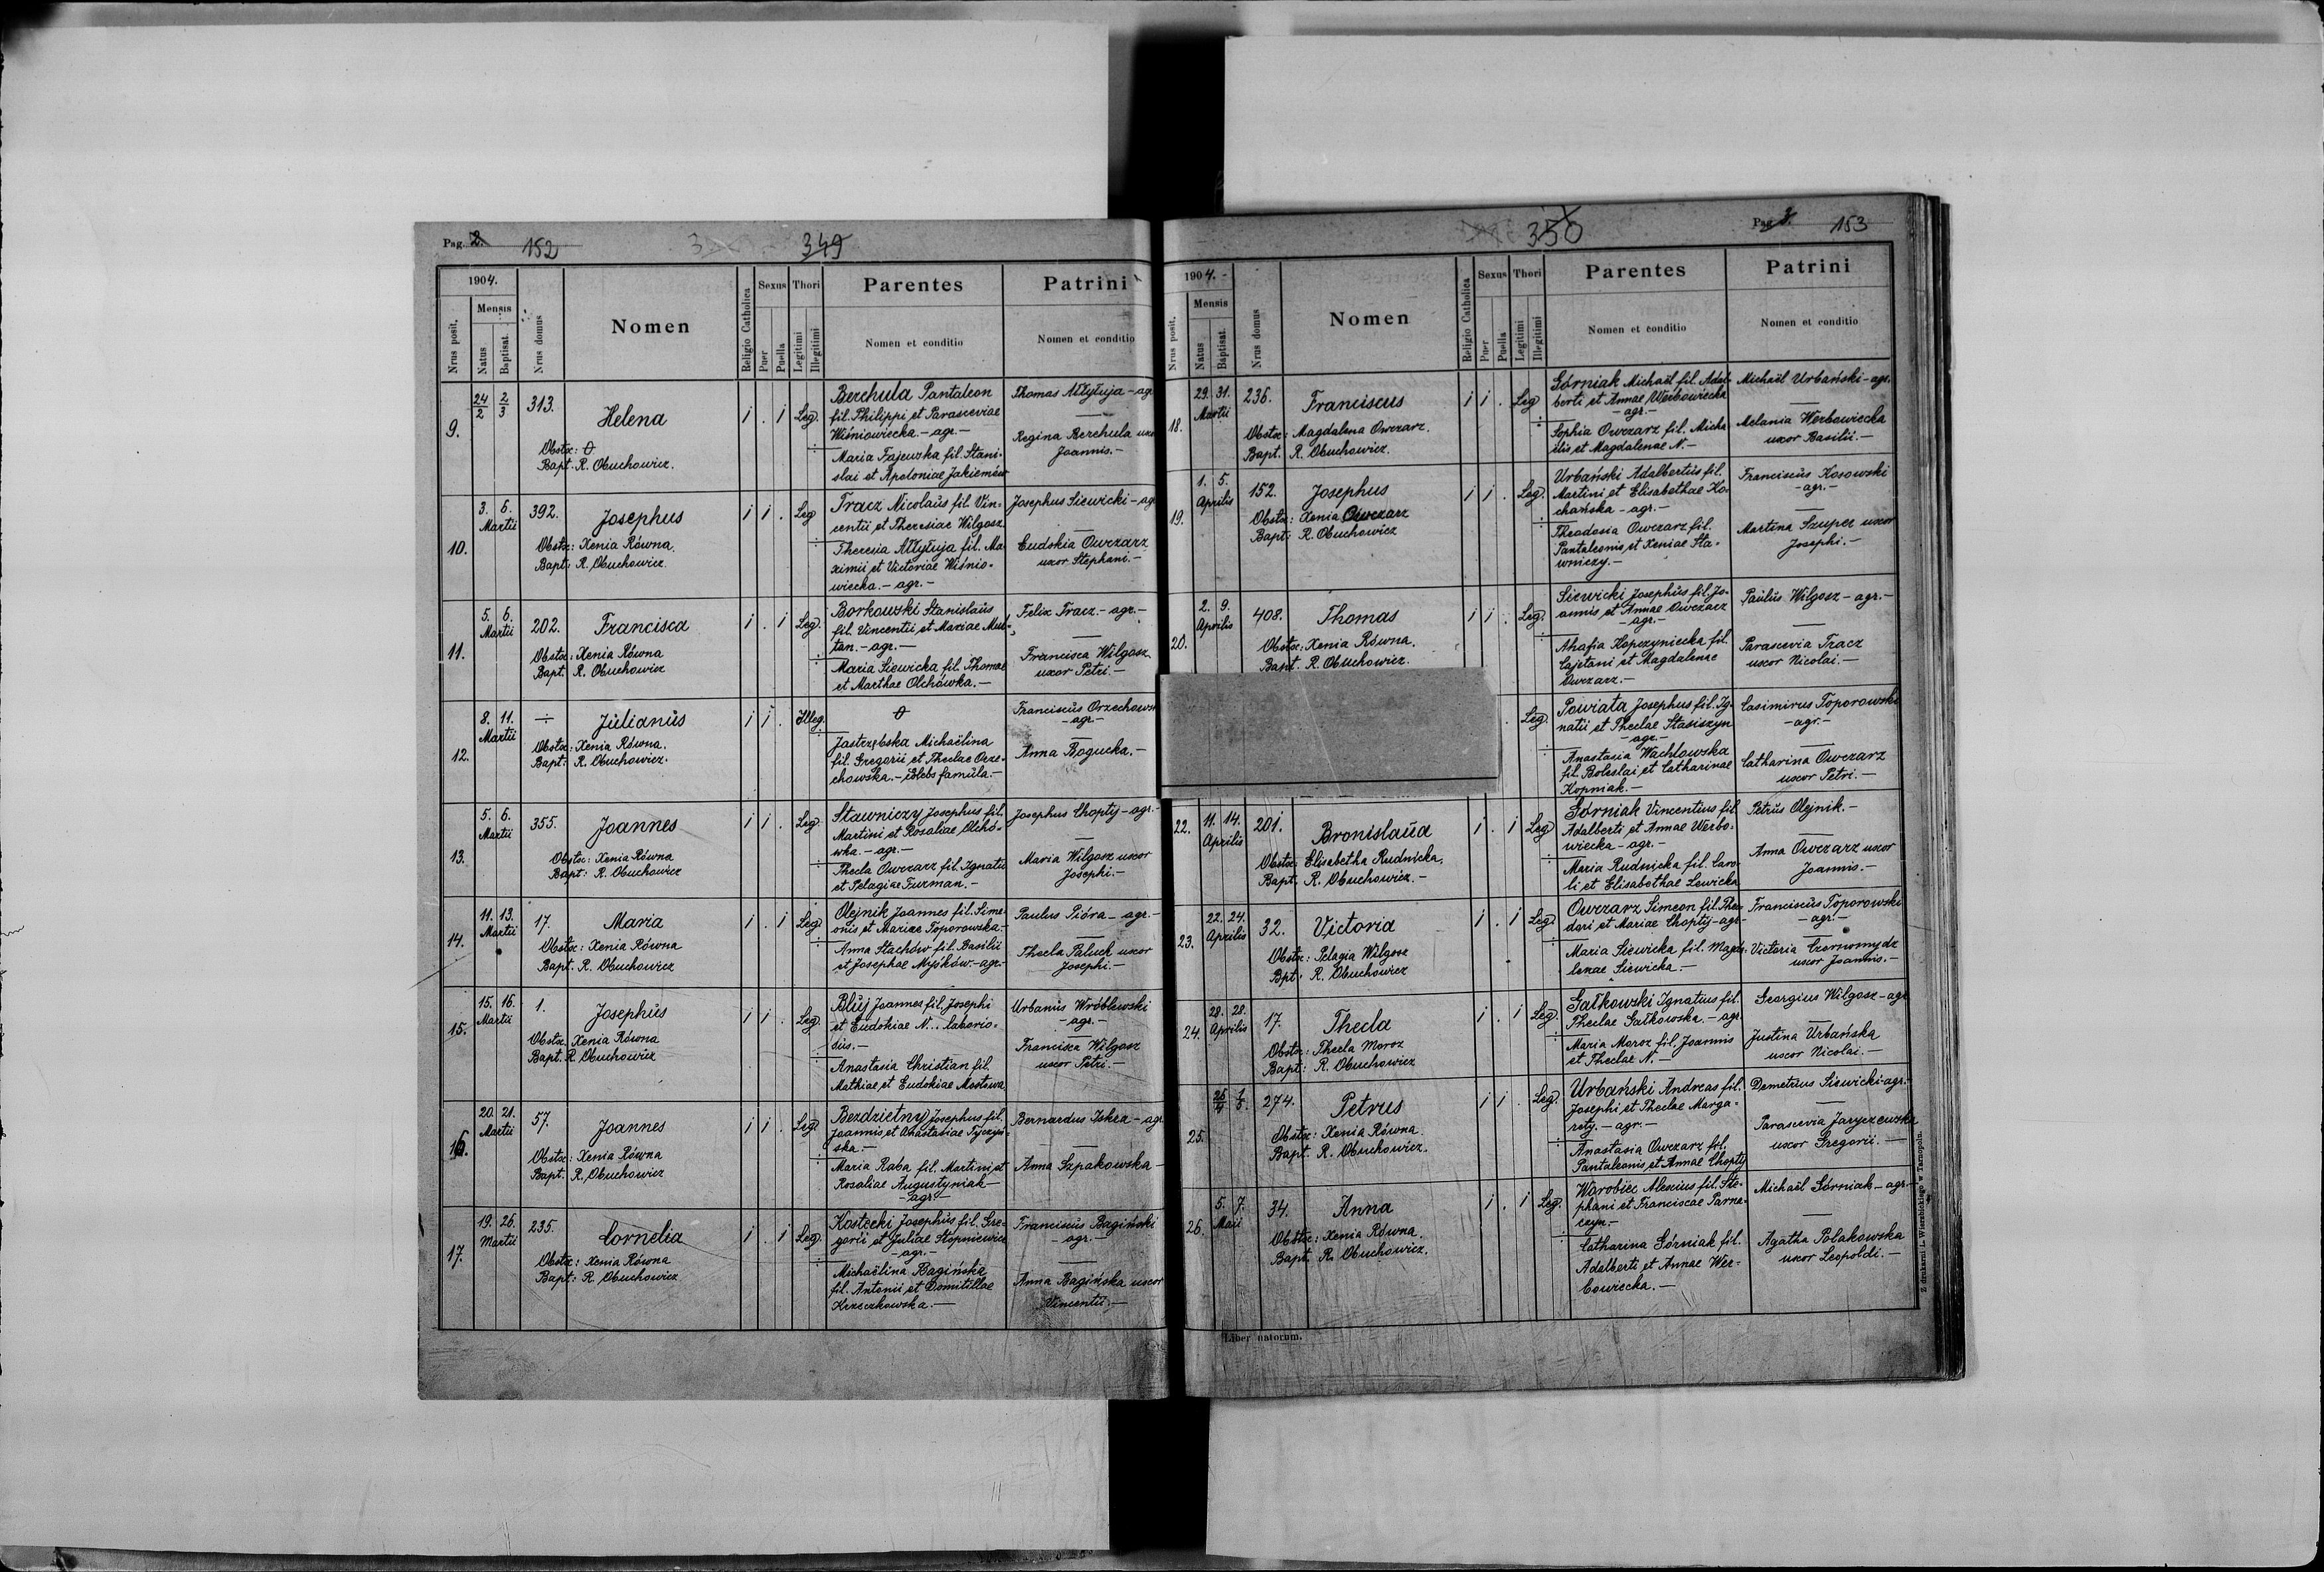 Pag. 2. 152 349
1904.
Mensis
Nrus posit.
Natus
Baptisat.
Nrus domus
Nomen
Religio Catholica
Sexus
Puer
Puella
Thori
Legitimi
Illegitimi
Parentes
Nomen et conditio
Patrini
Nomen et conditio
9. 24/2 2/3 313. Helena i . i Leg.
Obstx: O
Bapt: R. Obuchowicz.
Berchula Pantaleon
fil. Philippi et Parasceviae
Wiśniowiecka. - agr. -
Maria Zajewska fil. Stani-
slai et Apoloniae Jakiemów
Thomas Ałłyłuja - agr
Regina Berchula uxo
Joannis. -
10. 3. 6. Martii 392. Josephus i i . Leg
Obstx: Xenia Równa.
Bapt: R. Obuchowicz
Tracz Nicolaŭs fil. Vin-
centii et Theresiae Wilgosz
Theresia Ałłyłuja fil. Ma-
ximii et Victoriae Wiśnio-
wiecka. - agr. -
Josephus Siewicki - ag
Eudokia Owczarz
uxor Stephani. -
11. 5. 6. Martii 202. Francisca i . i Leg.
Obstx: Xenia Równa
Bapt. R. Obuchowicz
Borkowski Stanislaŭs
fil. Vincentii et Mariae Mul-
tan. - agr. -
Maria Siewicka fil. Thomae
et Marthae Olchówka. -
Felix Tracz. - agr. -
Francisca Wilgosz
uxor Petri. -
12. 8. 11. Martii ÷ Jŭlianŭs i i . Illeg.
Obstx: Xenia Równa.
Bapt: R. Obuchowicz.
O
Jastrzębska Michaëlina
fil. Gregorii et Theclae Orze-
chowska. - famŭla. -
Franciscŭs Orzechows
- agr -
Anna Bogucka. -
13. 5. 6. Martii 355. Joannes i i . Leg
Obstx: Xenia Równa
Bapt: R. Obuchowicz
Stawniczy Josephus fil.
Martini et Rosaliae Olchó-
wka. - agr. -
Thecla Owczarz fil. Ignatii
et Pelagiae Furman. -
Josephus Chopty - agr. -
Maria Wilgosz uxor
Josephi. -
14. 11. 13. Martii 17. Maria i . i Leg
Obstx: Xenia Równa
Bapt. R. Obuchowicz
Olejnik Joannes fil. Sime-
onis et Mariae Toporowska. -
Anna Stachów fil. Basilii
et Josephae Myśków. - agr. -
Paulus Pióra - agr. -
Thecla Paluch uxor
Josephi. -
15. 15. 16. Martii 1. Josephŭs i i . Leg.
Obstx. Xenia Równa
Bapt. R. Obuchowicz
Blŭj Joannes fil. Josephi
et Eudokiae N... laborio-
sŭs. -
Anastasia Christian fil.
Mathiae et Eudokiae Mostowa
Urbanŭs Wróblewski
- agr. -
Francisca Wilgosz
uxor Petri. -
16. 20. 21. Martii 57. Joannes i i . Leg.
Obstx: Xenia Równa
Bapt. R. Obuchowicz
Bezdzietny Josephus fil.
Joannis et Anastasiae Tyczyń-
ska. -
Maria Raba fil. Martini et
Rosaliae Augustyniak -
- agr. -
Bernardus Iskra - agr
Anna Szpakowska -
17. 19. 26. Martii 235. Cornelia i . i Leg.
Obstx: Xenia Równa
Bapt: R. Obuchowicz
Kostecki Josephŭs fil. Gre-
gorii et Juliae Stopniewicz
- agr. -
Michaëlina Bagińska
fil. Antonii et Domitillae
Krzeczkowska. -
Franciscŭs Bagiński
- agr. -
Anna Bagińska uxor
Vincentii. -
350 Pag. 3. 153
1904. -
Mensis
Nrus posit.
Natus
Baptisat.
Nrus domus
Nomen
Religio Catholica
Sexus
Puer
Puella
Thori
Legitimi
Illegitimi
Parentes
Nomen et conditio
Patrini
Nomen et conditio
18. 29. 31. Martii 236. Franciscus i i . Leg
Obstx: Magdalena Owczarz.
Bapt. R. Obuchowicz.
Górniak Michaël fil. Adal-
berti et Annae Werbowiecka
- agr. -
Sophia Owczarz fil. Micha
ëlis et Magdalenae N. -
Michaël Urbański - agr.
Melania Werbowiecka
uxor Basilii. -
19. 1. 5. Aprilis 152. Josephus i i . Leg.
Obstx: Xenia Owczarz
Bapt: R. Obuchowicz
Urbański Adalbertŭs fil.
Martini et Elisabethae Ko-
chańska - agr. -
Theodosia Owczarz fil.
Pantaleonis et Xeniae Sta-
wniczy. -
Franciscŭs Kosowski
- agr. -
Martina Szuper uxor
Josephi. -
20. 2. 9. Aprilis 408. Thomas i i . Leg.
Obstx: Xenia Równa.
Bapt. R. Obuchowicz.
Siewicki Josephŭs fil. Jo-
annis et Annae Owczarz
- agr. -
Ahafia Kopczyniecka fil.
Cajetani et Magdalenae
Owczarz. -
Paŭlŭs Wilgosz - agr. -
Parascevia Tracz
uxor Nicolai. -
. Leg.
Powiata Josephus fil. Ig-
natii et Theclae Stasiszyn
- agr. -
Anastasia Wachłowska
fil. Boleslai et Catharinae
Kopniak. -
Casimirus Toporowski
- agr. -
Catharina Owczarz
uxor Petri. -
22. 11. 14. Aprilis 201. Bronislaŭa i . i Leg
Obstx: Elisabetha Rudnicka.
Bapt. R. Obuchowicz. -
Górniak Vincentius fil
Adalberti et Annae Werbo-
wiecka - agr. -
Maria Rudnicka fil. Caro-
li et Elisabethae Lewicka
Petrŭs Olejnik. -
Anna Owczarz uxor
Joannis. -
23. 22. 24. Aprilis 32. Victoria i . i Leg
Obstx: Pelagia Wilgosz
Bpt: R. Obuchowicz
Owczarz Simeon fil. Theo
dori et Mariae Chopty - agr. -
Maria Siewicka fil. Magda-
lenae Siewicka -
Franciscŭs Toporowski
- agr. -
Victoria Czornomydz
uxor Joannis. -
24. 28. 28. Aprilis 17. Thecla i . i Leg.
Obstx: Thecla Moroz
Bapt: R. Obuchowicz
Gałkowski Ignatius fil.
Theclae Gałkowska. - agr
Maria Moroz fil. Joannis
et Theclae N. -
Georgius Wilgosz - agr
Justina Urbańska
uxor Nicolai. -
25. 274. Petrus i i . Leg.
Obstx: Xenia Równa.
Bapt. R. Obuchowicz.
Urbański Andreas fil.
Josephi et Theclae Marga-
rety. - agr. -
Anastasia Owczarz fil.
Pantaleonis et Annae Chopty
Demetrius Siewicki - agr. -
Parascevia Jaryczewska
uxor Gregorii. -
26. 5. 7. Maii 34. Anna i . i Leg.
Obstx: Xenia Równa.
Bapt. R. Obuchowicz.
Worobiec Alexius fil. Ste-
phani et Franciscae Parne-
czyn. -
Catharina Górniak fil.
Adalberti et Annae Wer-
bowiecka. -
Michaël Górniak - agr. -
Agatha Polakowska
uxor Leopoldi. -
Liber natorum.
Z drukarni L. Wierzbickiego w Tarnopolu.